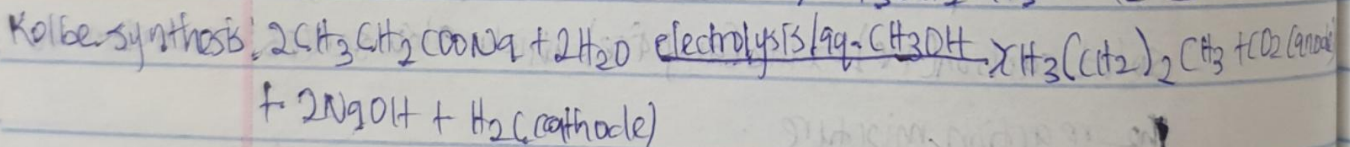 Kolbe synthesis: 2CH₃CH₂COONa + 2H₂O electrolysis/aq. CH₃OH CH₃(CH₂)₂CH₃ + CO₂ (anode)
+ 2NaOH + H₂ (cathode)